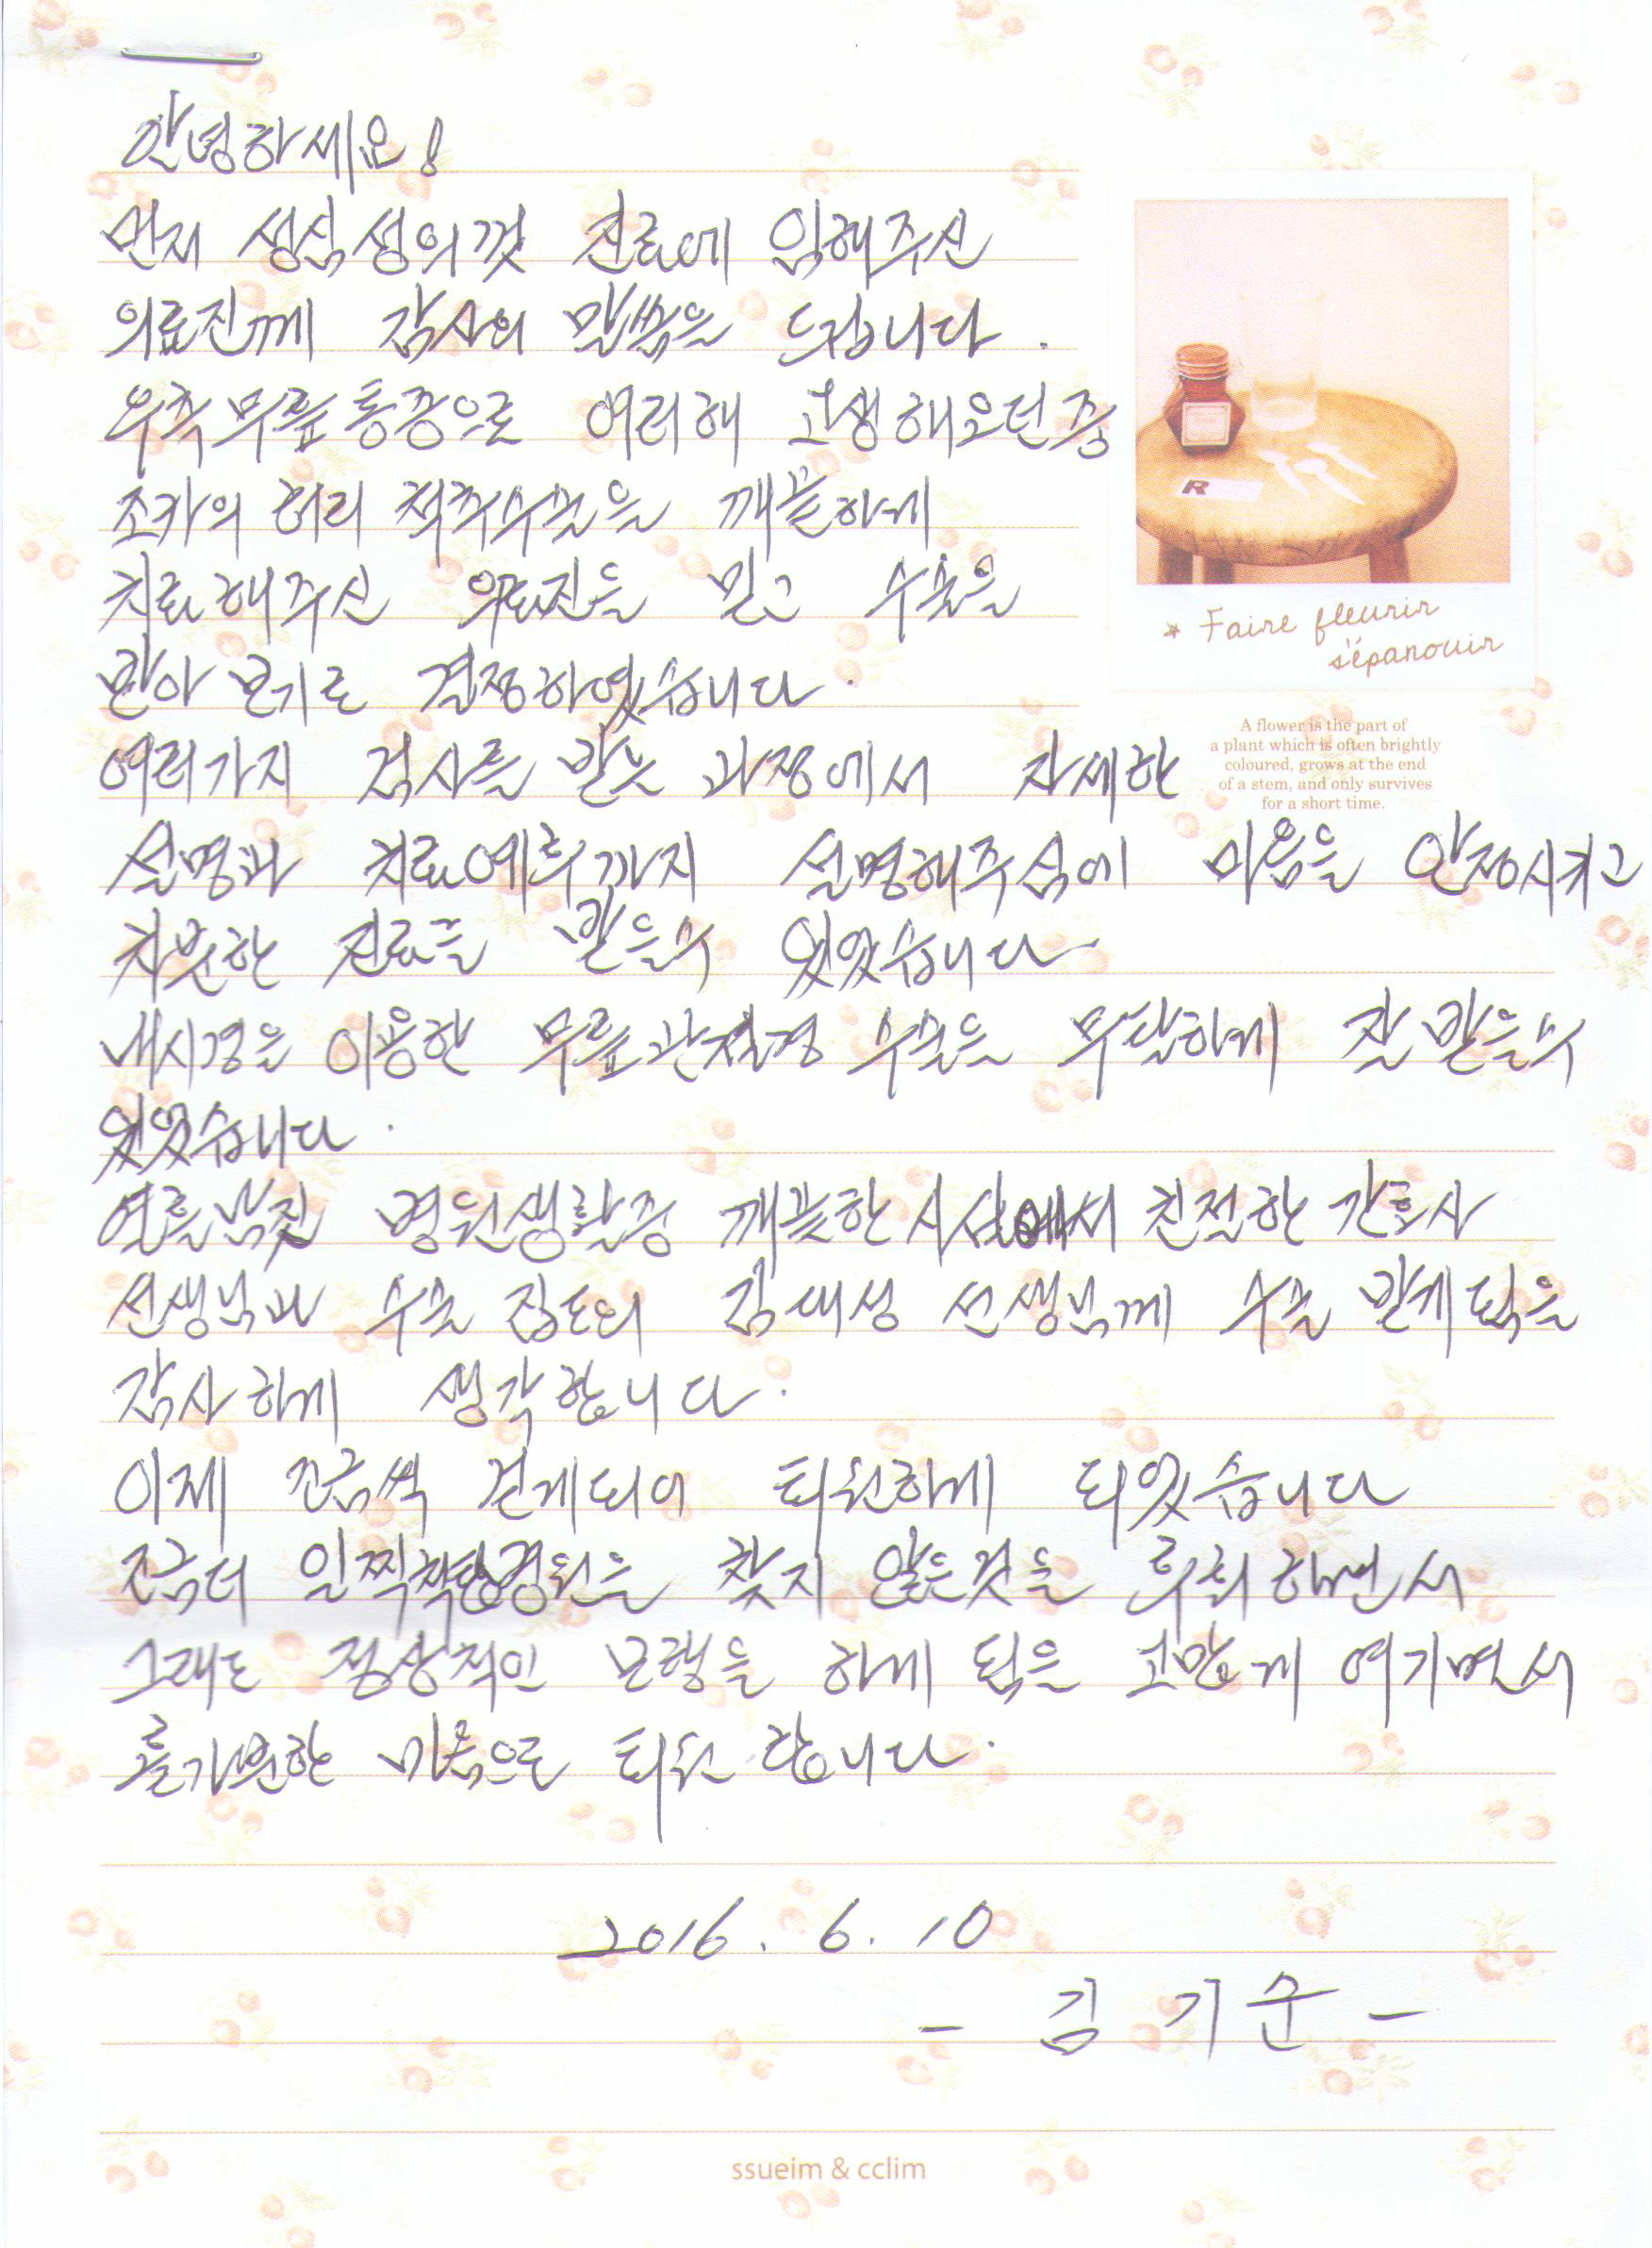 안녕하세요!
먼저 성심성의껏 진료에 임해주신
의료진께 감사의 말씀을 드립니다.
우측무릎통증으로 여러해 고생해오던중
조카의 허리 척추수술을 깨끗하게
치료해주신 의료진을 믿고 수술을
받아 보기로 결정하였습니다.
여러가지 검사를 받는 과정에서 자세한
설명과 치료예후까지 설명해주심에 마음을 안정시키고
차분한 진료를 받을수 있었습니다
내시경을 이용한 무릎관절경 수술을 무탈하게 잘 받을수
있었습니다.
열흘남짓 병원생활중 깨끗한 시설에서 친절한 간호사
선생님과 수술 집도의 김대성 선생님께 수술 받게됨을
감사하게 생각합니다.
이제 조금씩 걷게되어 퇴원하게 되었습니다
조금더 일찍 병원을 찾지 않은것을 후회하면서
그래도 정상적인 보행을 하게 됨을 고맙게 여기면서
홀가분한 마음으로 퇴원 합니다.
2016. 6. 10
- 김 기 순 -
* Faire fleurir
s'épanouir
A flower is the part of
a plant which is often brightly
coloured, grows at the end
of a stem, and only survives
for a short time.
R
ssueim & cclim